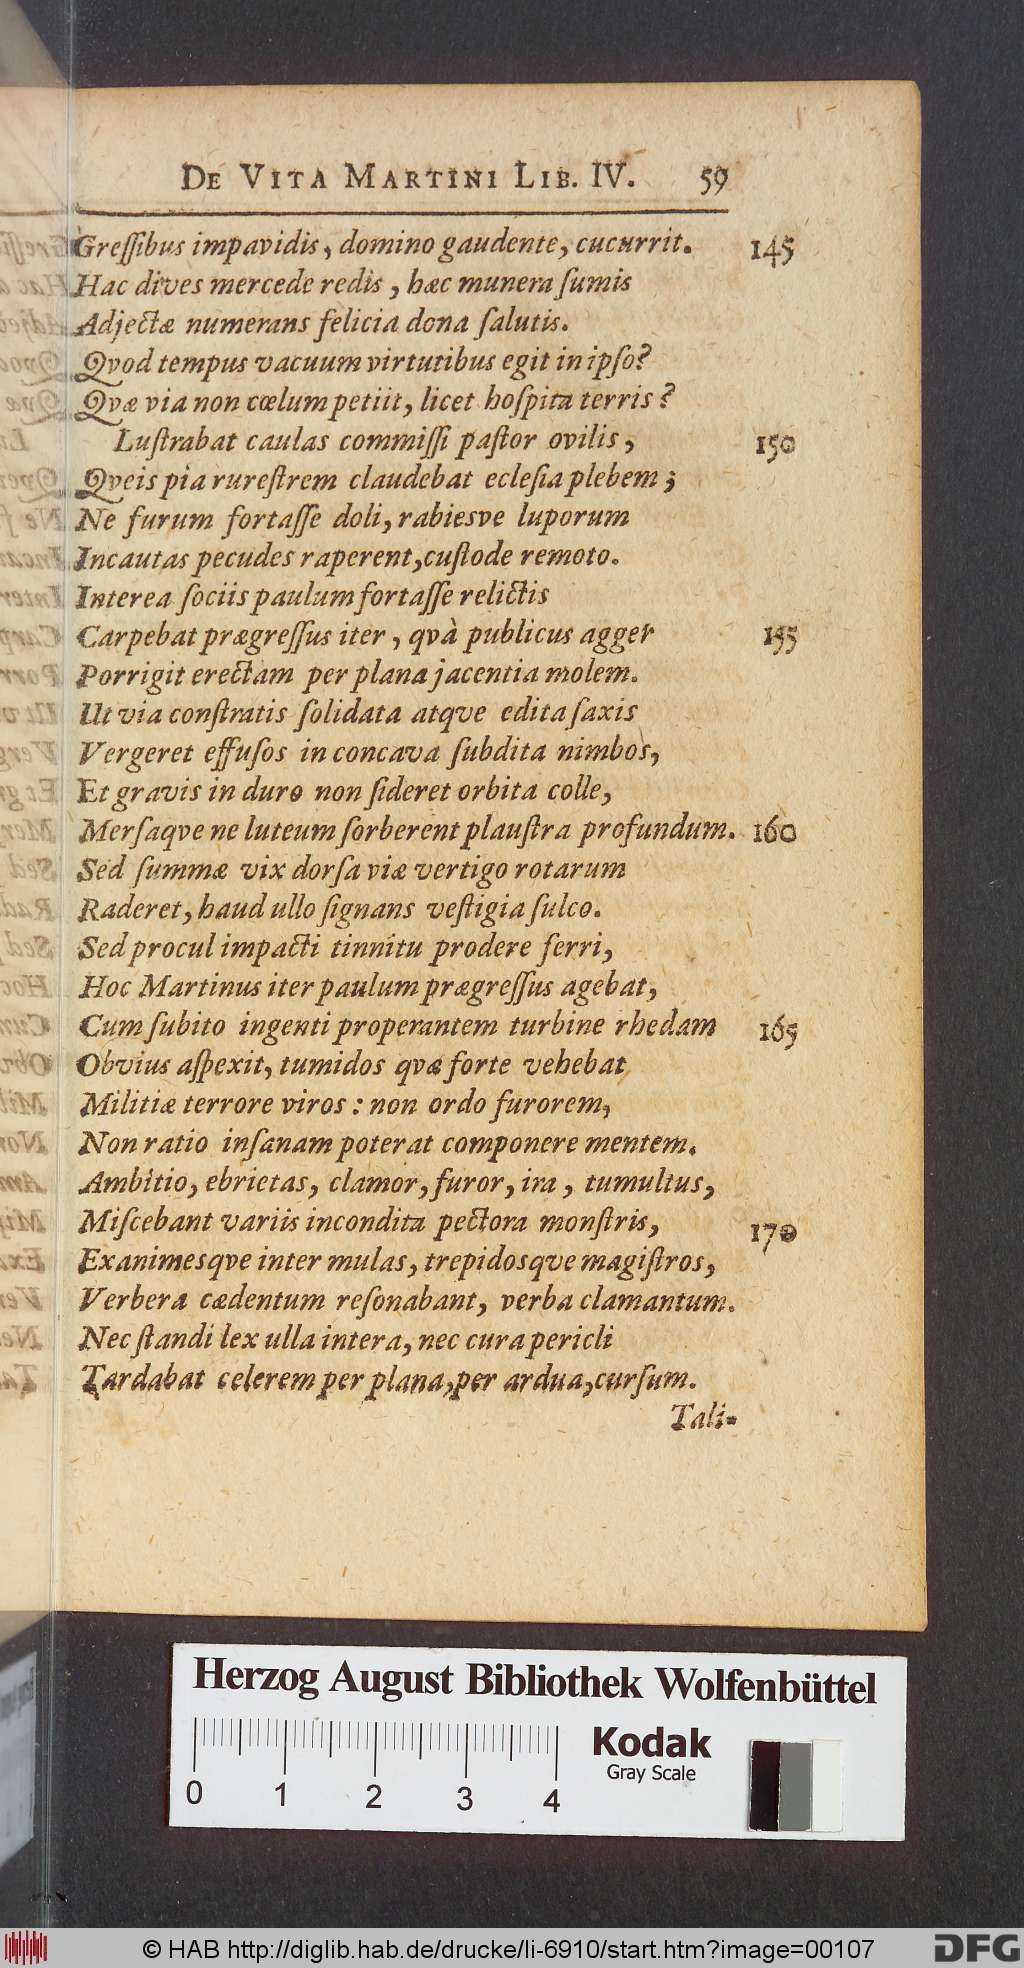 De Vita Martini Lib. IV. 59
Greſſibus impavidis, domino gaudente, cucurrit. 145
Hac dives mercede redis, hæc munera ſumis
Adjectæ numerans felicia dona ſalutis.
Qvod tempus vacuum virtutibus egit in ipſo?
Qvæ via non cœlum petiit, licet hoſpita terris?
Luſtrabat caulas commiſſi paſtor ovilis, 150
Qveis pia rureſtrem claudebat ecleſia plebem;
Ne furum fortaſſe doli, rabiesve luporum
Incautas pecudes raperent, cuſtode remoto.
Interea ſociis paulum fortaſſe relictis
Carpebat prægreſſus iter, qvà publicus agger 155
Porrigit erectam per plana jacentia molem.
Ut via conſtratis ſolidata atqve edita ſaxis
Vergeret effuſos in concava ſubdita nimbos,
Et gravis in duro non ſideret orbita colle,
Merſaqve ne luteum ſorberent plauſtra profundum. 160
Sed ſummæ vix dorſa viæ vertigo rotarum
Raderet, haud ullo ſignans veſtigia ſulco.
Sed procul impacti tinnitu prodere ferri,
Hoc Martinus iter paulum prægreſſus agebat,
Cum ſubito ingenti properantem turbine rhedam 165
Obvius aſpexit, tumidos qvæ forte vehebat
Militiæ terrore viros: non ordo furorem,
Non ratio inſanam poterat componere mentem.
Ambitio, ebrietas, clamor, furor, ira, tumultus,
Miſcebant variis incondita pectora monſtris, 170
Exanimesqve inter mulas, trepidosqve magiſtros,
Verbera cædentum reſonabant, verba clamantum.
Nec ſtandi lex ulla intera, nec cura pericli
Tardabat celerem per plana, per ardua, curſum.
Tali-
Herzog August Bibliothek Wolfenbüttel
0 1 2 3 4
Kodak
Gray Scale
© HAB http://diglib.hab.de/drucke/li-6910/start.htm?image=00107
DFG